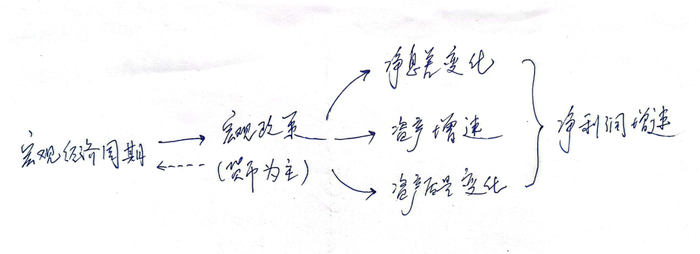 净息差变化
宏观经济周期
宏观政策
资产增速
净利润增速
(货币为主)
资产质量变化